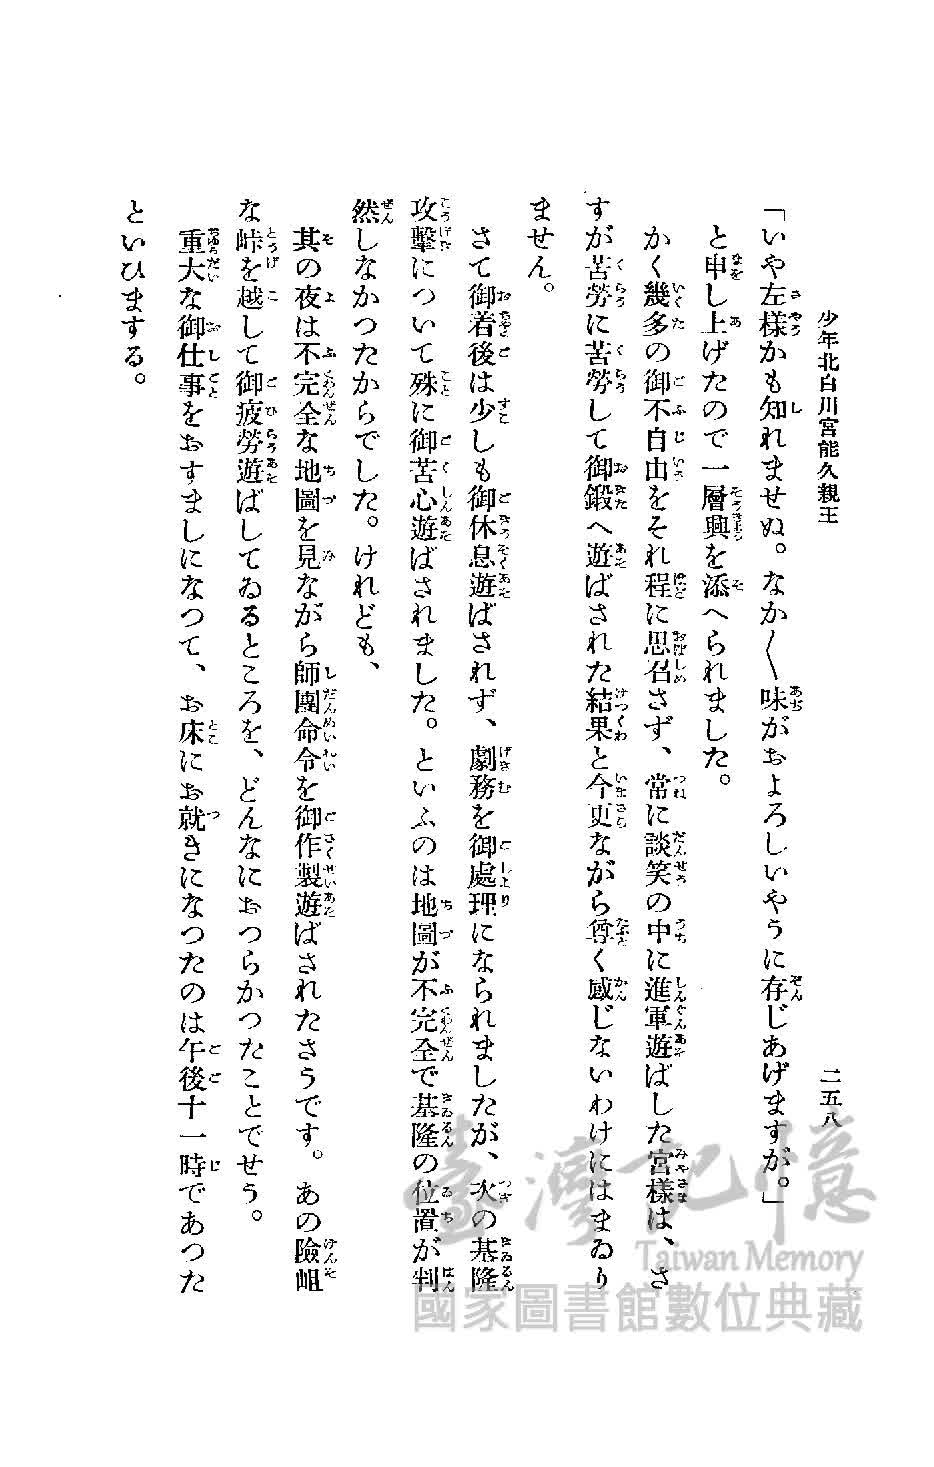 少年北白川宮能久親王
二五八
「いや左様かも知れませぬ。なか〳〵味がおよろしいやうに存じあげますが。」
と申し上げたので一層興を添へられました。
かく幾多の御不自由をそれ程に思召さず、常に談笑の中に進軍遊ばした宮様は、さ
すが苦勞に苦勞して御鍛へ遊ばされた結果と今更ながら尊く感じないわけにはまゐり
ません。
さて御着後は少しも御休息遊ばされず、劇務を御處理になられましたが、次の基隆
攻擊について殊に御苦心遊ばされました。といふのは地圖が不完全で基隆の位置が判
然しなかつたからでした。けれども、
其の夜は不完全な地圖を見ながら師團命令を御作製遊ばされたさうです。あの險岨
な峠を越して御疲勞遊ばしてゐるところを、どんなにおつらかつたことでせう。
重大な御仕事をおすましになつて、お床にお就きになつたのは午後十一時であつた
といひまする。
臺灣記憶
Taiwan Memory
國家圖書館數位典藏